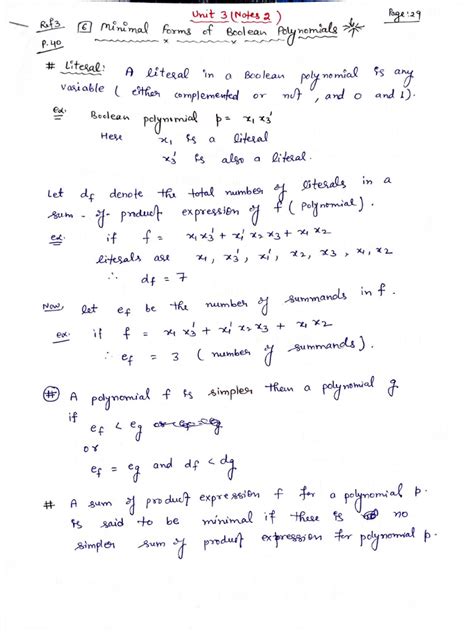 Unit 3 (Notes 2)
Page: 29
Ref 3
P. 40
6 Minimal Forms of Boolean Polynomials
# Literal: A literal in a Boolean polynomial is any
variable ( either complemented or not, and 0 and 1).
Ex: Boolean polynomial p = x₁ x₃'
Here x₁ is a literal
x₃' is also a literal.
Let df denote the total number of literals in a
sum-of-product expression of f (polynomial).
ex: if f = x₁x₃' + x₁'x₂x₃ + x₁x₂
literals are x₁, x₃', x₁', x₂, x₃, x₁, x₂
∴ df = 7
Now, let ef be the number of summands in f.
ex: if f = x₁x₃' + x₁'x₂x₃ + x₁x₂
∴ ef = 3 ( number of summands).
# A polynomial f is simpler then a polynomial g
if
ef < eg
or
ef = eg and df < dg
# A sum of product expression f for a polynomial p.
is said to be minimal if there is no
simpler sum of product expression for polynomial p.